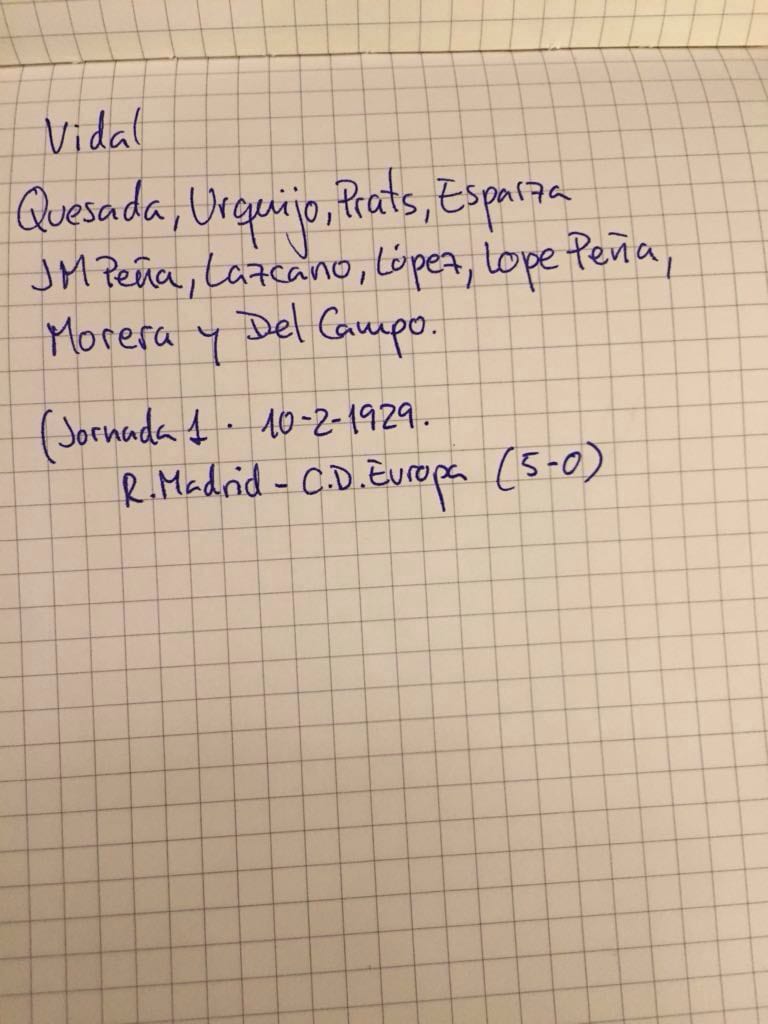 Vidal
Quesada, Urquijo, Prats, Esparza
JM Peña, Lazcano, López, Lope Peña,
Morera y Del Campo.
(Jornada 1 · 10-2-1929.
R. Madrid - C.D. Europa (5-0)